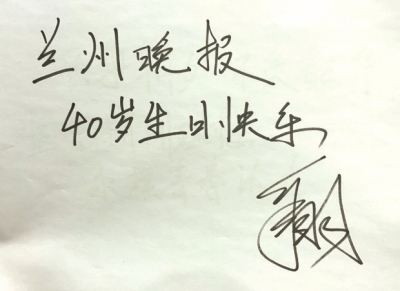 兰州晚报
40岁生日快乐